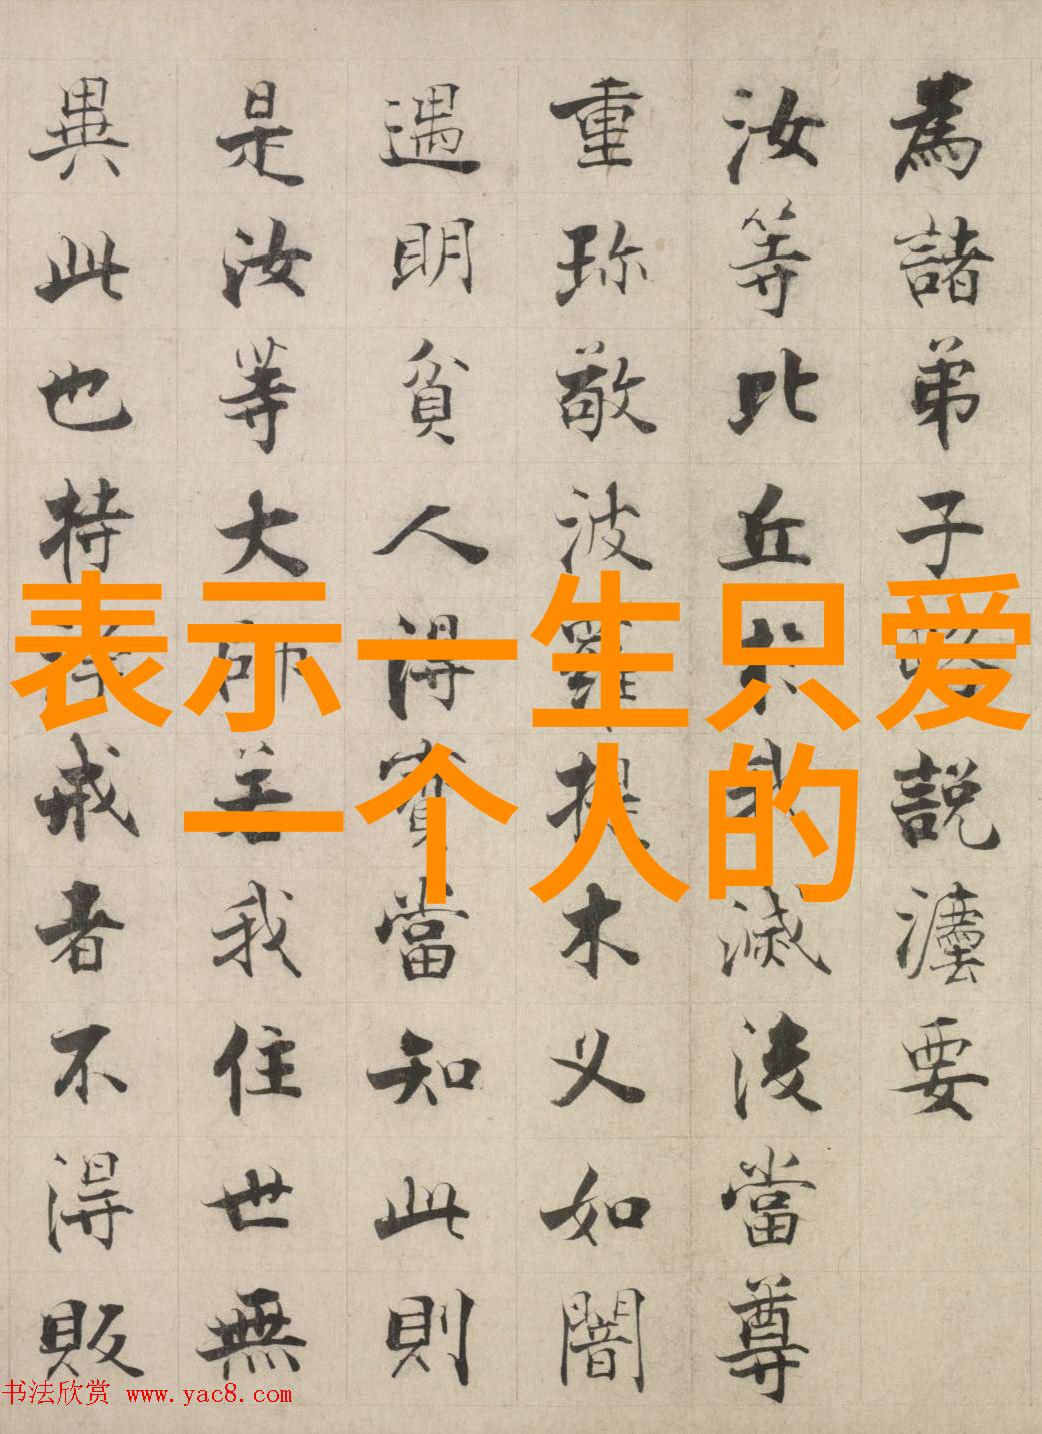 為諸弟子略說灋要
汝等比丘於我滅後當尊
重珎敬波羅提木叉如闇
遇明貧人得寶當知此則
是汝等大師若我住世無
異此也持淨戒者不得販
表示一生只爱
一个人的
书法欣赏 www.yac8.com